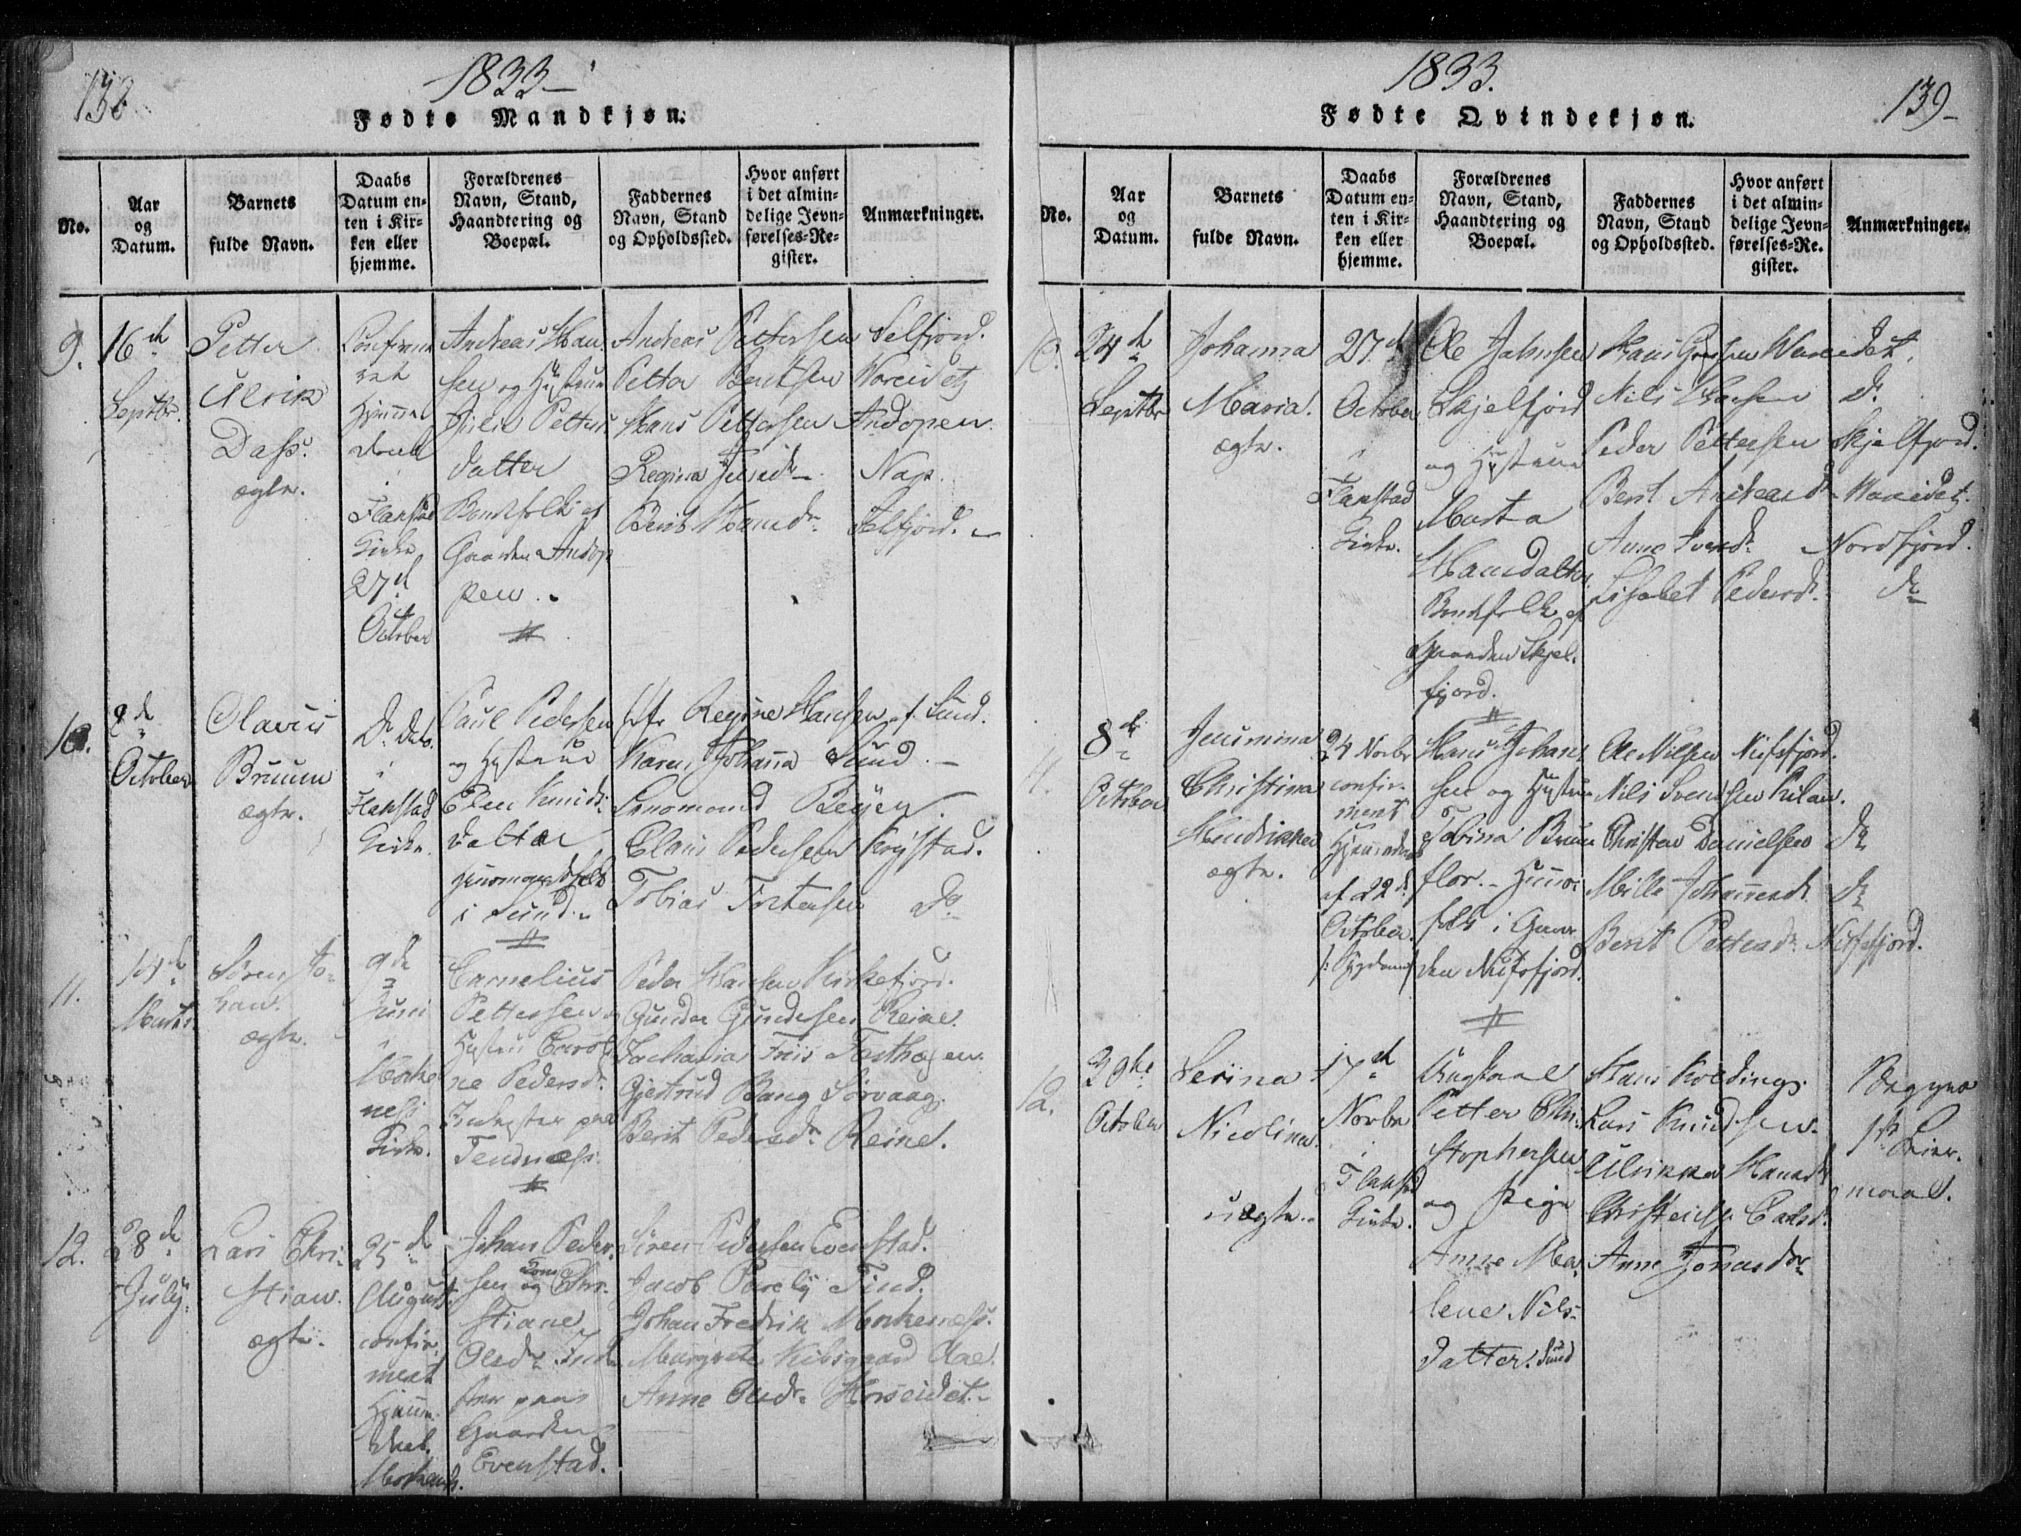 138
1833
Fødte Mandkjøn.
No.
Aar
og
Datum.
Barnets
fulde Navn.
Daabs
Datum en-
ten i Kir-
ken eller
hjemme.
Forældrenes
Navn, Stand,
Haandtering og
Boepæl.
Faddernes
Navn, Stand
og Opholdssted.
Hvor anført
i det almin-
delige Jevn-
førelses-Re-
gister.
Anmærkninger.
9.
16de
Septbr.
Petter
Ulrik
Dass.
ægte.
i
Flakstad
Kirke
27de
October
Andreas Han-
sen og Hustrue
Petters
datter
Bondfolk af
Gaarden Andop
pen.
Andreas Pettersen Selfjord.
Petter Berntsen Horeidet
Hans Pettersen Andopen
Regina Jensdr Nap.
Berit Hansdr Selfjord.
10.
2de
October
Olavus
Bruun
ægte.
Do Dato
i
Flakstad
Kirke.
Paul Pedersen
og Hustrue
Elen Knuds-
datter
i Sund.
Regine Hansen af Sund.
Karen Johanna Sund.
Enomand Beyer.
Claus Pedersen Krystad.
Tobias Tostensen Do
11.
14de
Marts
Søren Jo-
han.
ægte.
9de
Juni
i
Moske
næs
Kirke.
Cornelius
Pettersen
Hustru Caroli
ne Pedersdr
Inderster paa
Tendnæs.
Peder Hansen Kirkefjord.
Gunder Gundersen Reine.
Zacharias Friis Festhagen.
Gjertrud Bang Sørvaag.
Berit Pedersdr Reine.
12.
28de
July.
Lars Chri-
stian.
ægte.
25de
August
confir-
meret
Hjemme
døbt
Johan Peder-
sen og Chri-
stiane
Olsdr Ind-
ster paa
Gaarden
Evenstad.
Søren Pedersen Evenstad.
Jacob Parely Tind.
Johan Fredrik Moskenæs.
Margrete Kibsgaard Aae.
Anne Olsdr Horseidet.
1833.
139
Fødte Qvindekjøn.
No.
Aar
og
Datum.
Barnets
fulde Navn.
Daabs
Datum en-
ten i Kir-
ken eller
hjemme.
Forældrenes
Navn, Stand,
Haandtering og
Boepæl.
Faddernes
Navn, Stand
og Opholdssted.
Hvor anført
i det almin-
delige Jevn-
førelses-Re-
gister.
Anmærkninger.
10.
24de
Septbr
Johanna
Maria.
ægte.
27de
October
i
Flakstad
Kirke.
Ole Johnsen
Skjelfjord
og Hustrue
Marta
Hansdatter
Bondfolk af
Gaarden Skjel-
fjord.
Hans Wareidet.
Nils Do
Peder Pettersen Skjelfjord.
Berit Andreasdr Wareidet.
Anne Svendr Nordfjord.
Lisabet Pedersdr. Do
11.
8de
October
Jensmina
Christina
Hendrikke
ægte.
24 Novbr
confir-
meret
af 22de
October
Hans Johan-
sen og Hustrue
Tobina Bruun
flor.
folk i Gaar-
den Nusfjord.
Ole Nilsen Nusfjord.
Nils Svendsen Kilan.
Christen Danielsen Do
Mille Johannesdr Do
Berit Pettersdr Nusfjord.
12.
29de
October
Serina
Nicolina.
uægte.
17de
Novbr
i
Flakstad
Kirke.
Ungkarl
Petter Chri-
stophersen
og Pige
Anne Ma-
lene Nils-
datter. Sund
Hans Koldings.
Lars Knudsen.
Ulrikke Hansdr
Anne Jonasdr
Begges
1ste Leier-
maal.